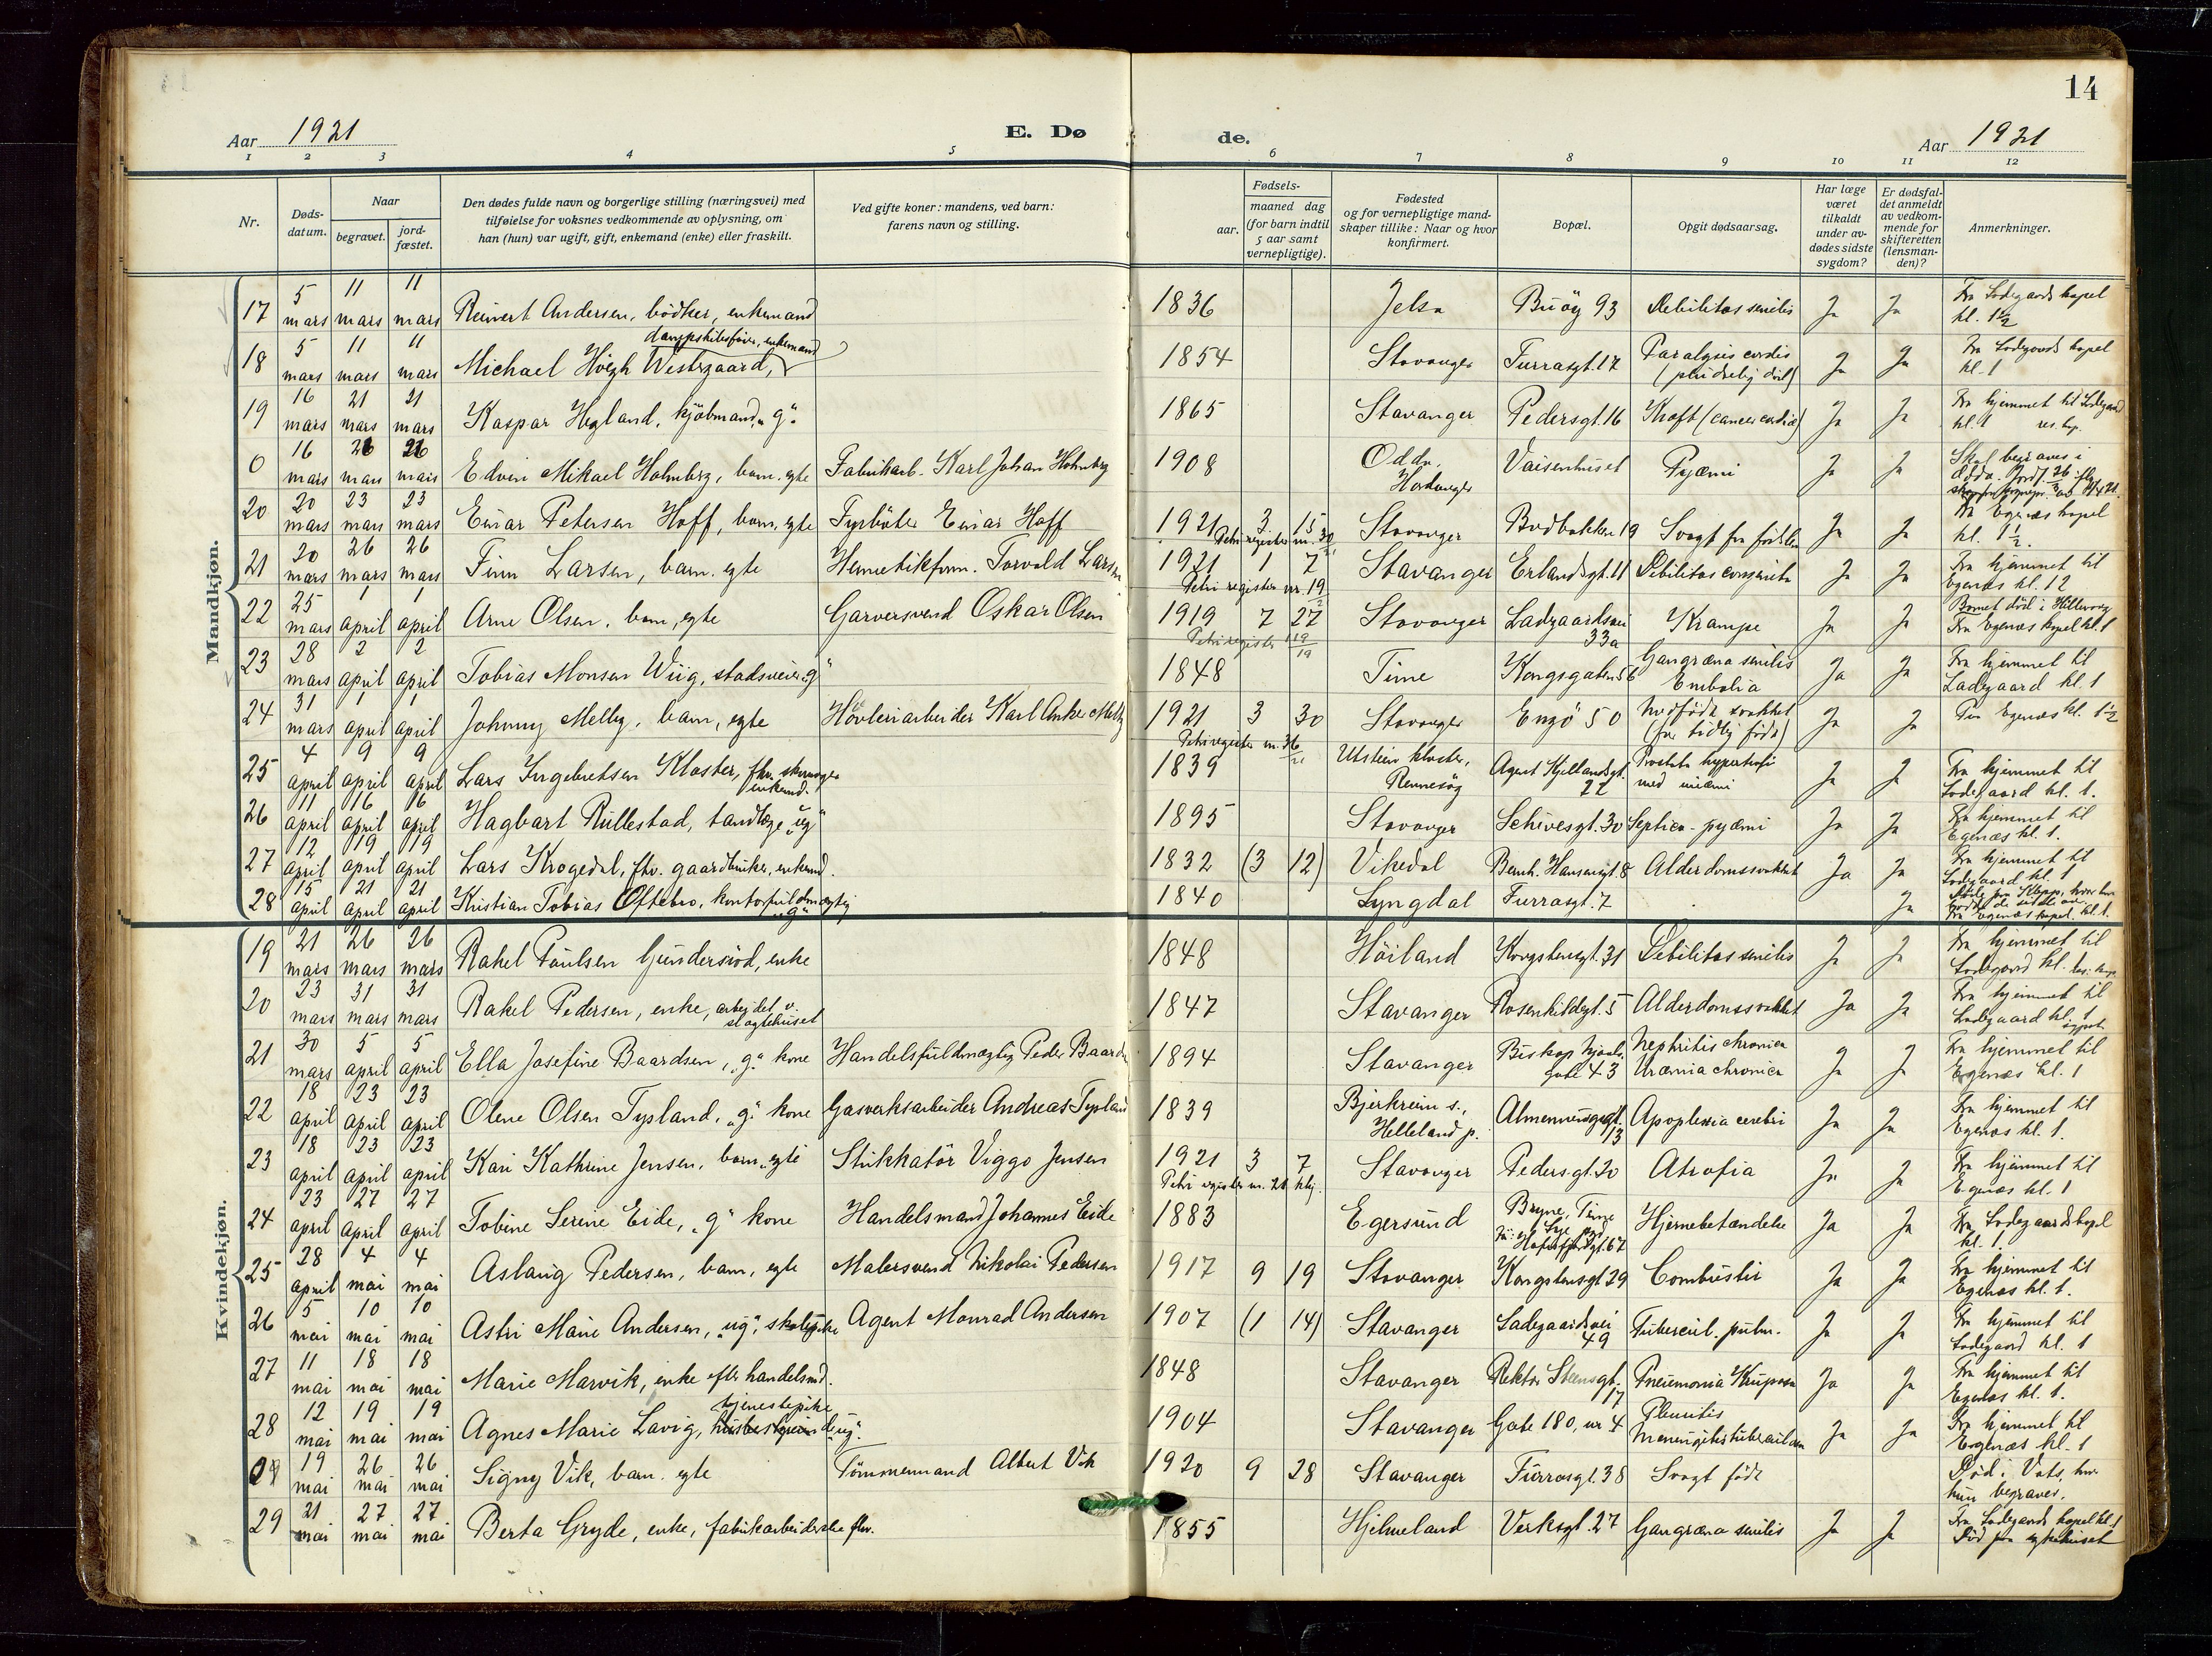 14
Aar 1921
E. Dø
de.
Aar 1921
1 2 3 4 5 6 7 8 9 10 11 12
Nr.
Døds-datum.
Naar
begravet.
jord-fæstet.
Den dødes fulde navn og borgerlige stilling (næringsvei) med
tilføielse for voksnes vedkommende av oplysning, om
han (hun) var ugift, gift, enkemand (enke) eller fraskilt.
Ved gifte koner: mandens, ved barn:
farens navn og stilling.
aar.
Fødsels-
maaned dag
(for barn indtil
5 aar samt
vernepligtige).
Fødested
og for vernepligtige mand-
skaper tillike: Naar og hvor
konfirmert.
Bopæl.
Opgit dødsaarsag.
Har læge
været
tilkaldt
under av-
dødes sidste
sygdom?
Er dødsfal-
det anmeldt
av vedkom-
mende for
skifteretten
(lensman-
den)?
Anmerkninger.
Mandkjøn.
17 5 mars 11 mars 11 mars Reinert Andersen, bödker, enkemand 1836 Jelsa Buöy 93 Debilitas senilis Ja Ja Fra Ladegaards kapel kl. 1½
18 5 mars 11 mars 11 mars Michael Höegh Westergaard, dampskibsförer, enkemand 1854 Stavanger Furrasgt. 17 Paralysis cordis (pludselig död) Ja Ja Fra Ladegaards kapel kl. 1
19 16 mars 21 mars 21 mars Kaspar Hegland, kjöbmand, „g“ 1865 Stavanger Pedersgt. 16 Kræft (cancer cardiæ) Ja Ja Fra hjemmet til Ladegaard kl. 1
0 16 mars 26 mars 26 mars Edvin Mikael Holmberg, barn, egte Fabrikarb. Karl Johan Holmberg 1908 Odda, Hardanger Vaisenhuset Pyæmi Ja Ja Skal begraves i Odda. Jordf. 26
20 20 mars 23 mars 23 mars Einar Petersen Hoff, barn, egte Fyrböter Einar Hoff 1921 3 15 Petri register nr. 30 Stavanger Bødbakken 19 Svagt fra födselen Ja Ja Fra Egenæs kapel kl. 1½.
21 20 mars 26 mars 26 mars Finn Larsen, barn, egte Hermetikform. Torvald Larsen 1921 1 7 Petri register nr. 19 Stavanger Erlandsgt. 11 Debilitas congenita Ja Ja Fra hjemmet til Egenæs kl. 12
22 25 mars 1 april 1 april Arne Olsen, barn, egte Garversvend Oskar Olsen 1919 7 27 Petri register 119/19 Stavanger Ladgaardsvei 33a Krampe Ja Ja Barnet död i Hillevaag Fra Egenæs kapel kl. 1
23 28 mars 2 april 2 april Tobias Monsen Wiig, stadsveier, „g“ 1848 Time Kongsgaten 56 Gangræna senilis Embolia Ja Ja Fra hjemmet til Ladegaard kl. 1
24 31 mars 1 april 1 april Johnny Melby, barn, egte Hövleriarbeider Karl Anker Melby 1921 3 30 Petri register nr. 36/21 Stavanger Engö 50 Medfödt svakhet (for tidlig födt) Ja Ja Fra Egenæs kl. 1½
25 4 april 9 april 9 april Lars Ingebretsen Kloster, fhv. enkemd. 1839 Utstein kloster, Rennesöy Agent Kjellandsgt. 22 Prostata hypertrofi med uræmi Ja Ja Fra hjemmet til Ladegaard kl. 1.
26 11 april 16 april 16 april Hagbart Rullestad, tandlæge „ug“ 1895 Stavanger Schivesgt. 30 Septico-pyæmi Ja Ja Fra hjemmet til Egenæs kl. 1.
27 12 april 19 april 19 april Lars Krogedal, fhv. gaardbruker, enkemd. 1832 (3 12) Vikedal Bernh. Hansensgt. 8 Alderdomssvakhet Ja Ja Fra hjemmet til Ladegaard kl. 1
28 15 april 21 april 21 april Kristian Tobias Oftebro, kontorfuldmægtig „g“ 1840 Lyngdal Furrasgt. 7 Ja Fra Egenæs kapel kl. 1.
Kvindekjøn.
19 21 mars 26 mars 26 mars Rakel Paulsen Gundersröd, enke 1848 Höiland Kongstensgt. 31 Debilitas senilis Ja Ja Fra hjemmet til Ladegaard kl.
20 23 mars 31 mars 31 mars Rakel Pedersen, enke, arbejdet v. slagtehuset 1847 Stavanger Rosenkildegt. 5 Alderdomssvakhet Ja Ja Fra hjemmet til Ladegaard kl. 1
21 30 mars 5 april 5 april Ella Josefine Baardsen, „g“ kone Handelsfuldmægtig Peder Baardsen 1894 Stavanger Biskop Njaals gate 43 Nephritis chronica Uræmia chronica Ja Ja Fra hjemmet til Egenæs kl. 1
22 18 april 23 april 23 april Olene Olsen Tysland, „g“ kone Gasverksarbeider Andreas Tysland 1839 Bjerkreim s., Helleland p. Almenningsgt. 13 Apoplexia cerebri Ja Ja Fra hjemmet til Egenæs kl. 1.
23 18 april 23 april 23 april Kari Kathrine Jensen, barn, egte Stukkatör Viggo Jensen 1921 3 7 Petri register nr. 21 Stavanger Pedersgt. 20 Atrofia Ja Ja Fra hjemmet til Egenæs kl. 1
24 23 april 27 april 27 april Tobine Serine Eide, „g“ kone Handelsmand Johannes Eide 1883 Egersund Bryne, Time Hafrsfjordgt. 67 Hjernebetændelse Ja Ja Fra Ladegaards kapel kl. 1
25 28 april 4 mai 4 mai Aslaug Pedersen, barn, egte Malersvend Nikolai Pedersen 1917 9 19 Stavanger Kongstensgt 29 Combustio Ja Ja Fra hjemmet til Egenæs kl. 1.
26 5 mai 10 mai 10 mai Astri Marie Andersen, „ug“, skolepike Agent Monrad Andersen 1907 (1 14) Stavanger Ladegaardsvei 49 Tubercul. pulm. Ja Ja Fra hjemmet til Ladegaard kl. 1
27 11 mai 18 mai 18 mai Marie Marvik, enke efter handelsmd. 1848 Stavanger Rektor Steensgt. 17 Pneumonia Kruposa Ja Ja Fra hjemmet til Egenæs kl. 1.
28 12 mai 19 mai 19 mai Agnes Marie Lavig, tjenestepike „ug“. 1904 Stavanger Gate 180, nr 4 Pleuritis Meningitis tuberculosa Ja Ja Fra hjemmet til Egenæs kl. 1
0 19 mai 26 mai 26 mai Signy Vik, barn, egte Tömmermand Albert Vik 1920 9 28 Stavanger Furrasgt. 38 Svagt födt Död i Vats, hvor hun begraves.
29 21 mai 27 mai 27 mai Berta Gryde, enke, fabrikarbeiderske fhv. 1855 Hjelmeland Verksgt. 27 Gangræna senilis Ja Ja Fra Ladegaards kapel kl. 1 Död paa sykehuset